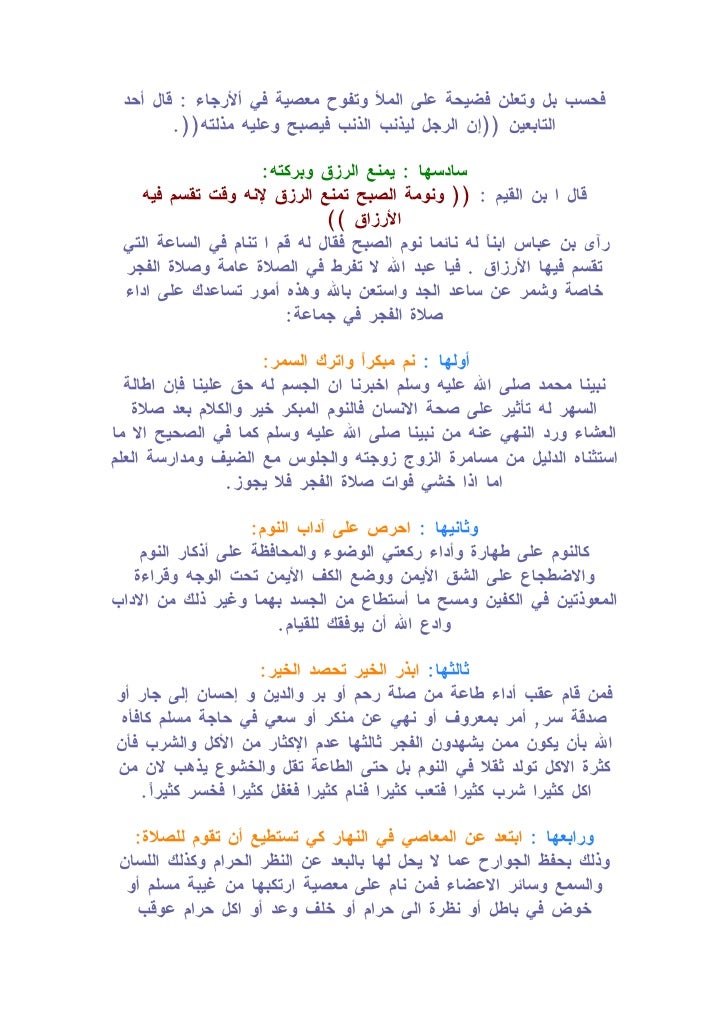 فحسب بل وتعلن فضيحة على الملأ وتفوح معصية في ألأرجاء : قال أحد
التابعين ((إن الرجل ليذنب الذنب فيصبح وعليه مذلته)).
سادسها : يمنع الرزق وبركته:
قال ا بن القيم : (( ونومة الصبح تمنع الرزق لإنه وقت تقسم فيه
الأرزاق ))
رآى بن عباس ابنآ له نائما نوم الصبح فقال له قم ا تنام في الساعة التي
تقسم فيها الأرزاق . فيا عبد الله لا تفرط في الصلاة عامة وصلاة الفجر
خاصة وشمر عن ساعد الجد واستعن بالله وهذه أمور تساعدك على اداء
صلاة الفجر في جماعة:
أولها : نم مبكرآ واترك السمر:
نبينا محمد صلى الله عليه وسلم اخبرنا ان الجسم له حق علينا فإن اطالة
السهر له تأثير على صحة الانسان فالنوم المبكر خير والكلام بعد صلاة
العشاء ورد النهي عنه من نبينا صلى الله عليه وسلم كما في الصحيح الا ما
استثناه الدليل من مسامرة الزوج زوجته والجلوس مع الضيف ومدارسة العلم
اما اذا خشي فوات صلاة الفجر فلا يجوز.
وثانيها : احرص على آداب النوم:
كالنوم على طهارة وأداء ركعتي الوضوء والمحافظة على أذكار النوم
والاضطجاع على الشق الأيمن ووضع الكف الأيمن تحت الوجه وقراءة
المعوذتين في الكفين ومسح ما أستطاع من الجسد بهما وغير ذلك من الاداب
وادع الله أن يوفقك للقيام.
ثالثها: ابذر الخير تحصد الخير:
فمن قام عقب أداء طاعة من صلة رحم أو بر والدين و إحسان إلى جار أو
صدقة سر, أمر بمعروف أو نهي عن منكر أو سعي في حاجة مسلم كافأه
الله بأن يكون ممن يشهدون الفجر ثالثها عدم الإكثار من الأكل والشرب فأن
كثرة الاكل تولد ثقلا في النوم بل حتى الطاعة تقل والخشوع يذهب لان من
اكل كثيرا شرب كثيرا فتعب كثيرا فنام كثيرا فغفل كثيرا فخسر كثيرآ.
ورابعها : ابتعد عن المعاصي في النهار كي تستطيع أن تقوم للصلاة:
وذلك بحفظ الجوارح عما لا يحل لها بالبعد عن النظر الحرام وكذلك اللسان
والسمع وسائر الاعضاء فمن نام على معصية ارتكبها من غيبة مسلم أو
خوض في باطل أو نظرة الى حرام أو خلف وعد أو اكل حرام عوقب